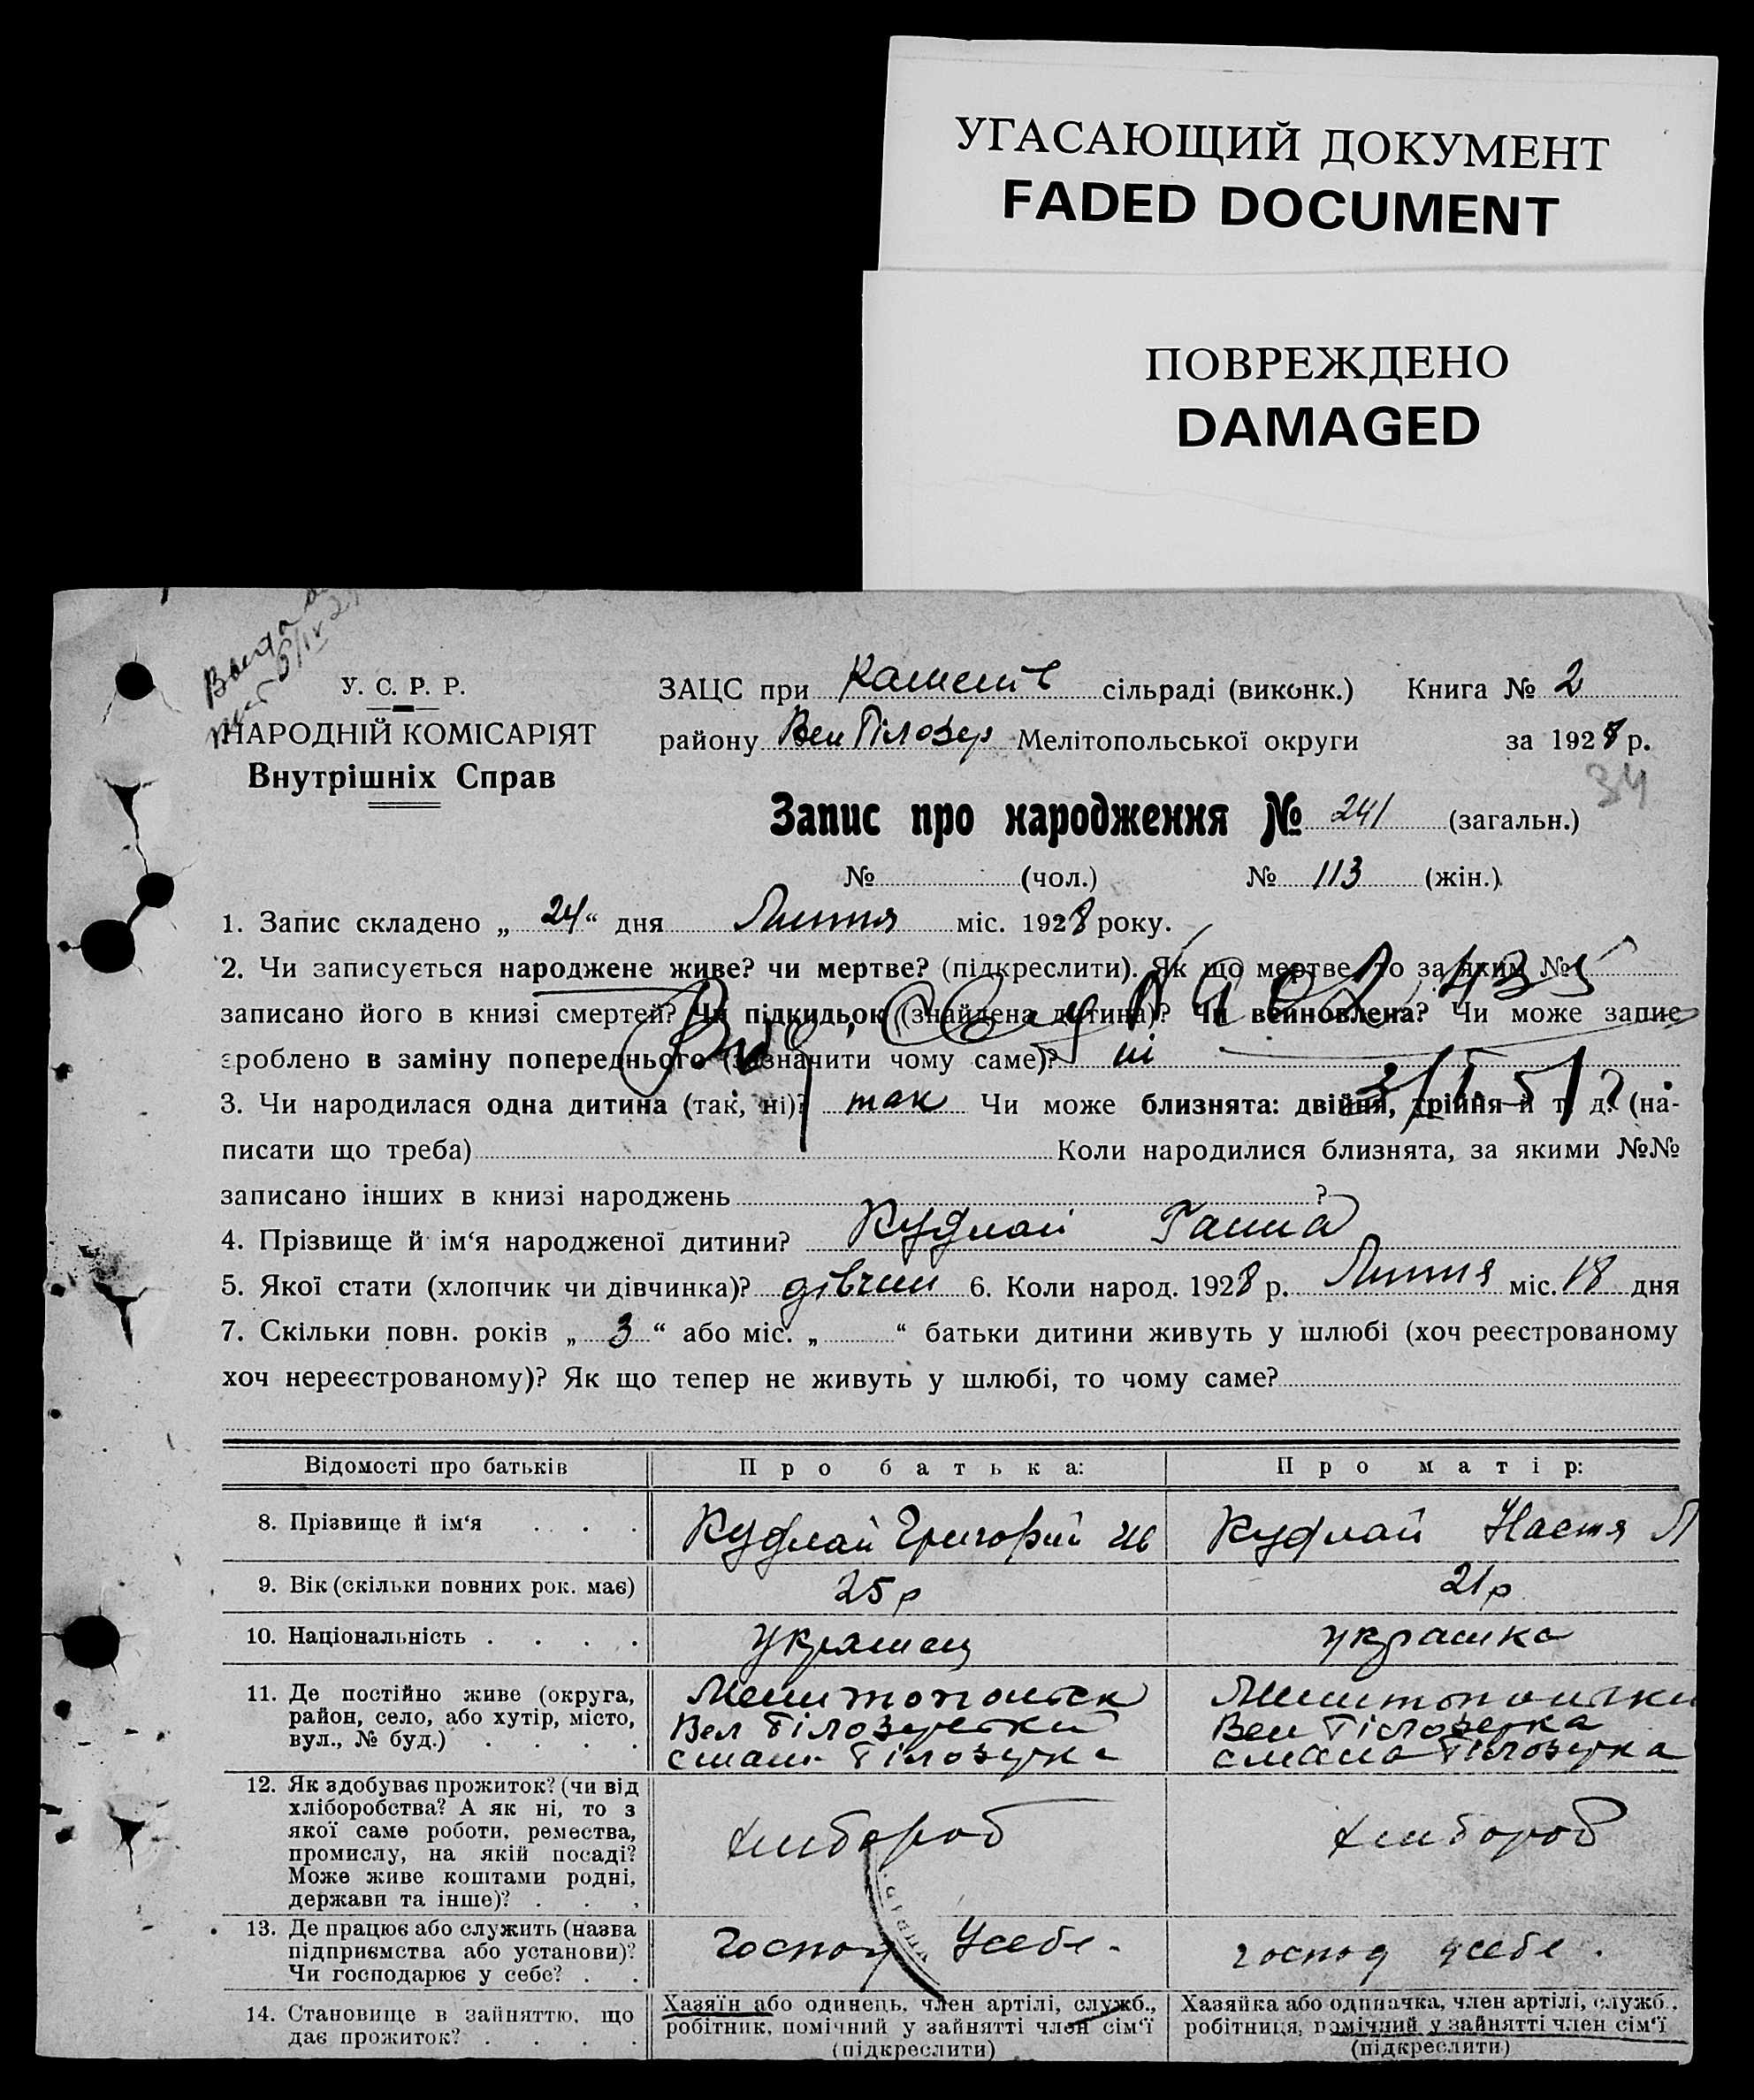 УГАСАЮЩИЙ ДОКУМЕНТ
FADED DOCUMENT
ПОВРЕЖДЕНО
DAMAGED
У. С. Р. Р.
НАРОДНІЙ КОМІСАРІЯТ
Внутрішніх Справ
ЗАЦС при сільраді (виконк.) Книга № 2
району Вел Білозер Мелітопольської округи за 1928 р.
34
Запис про народження № 241 (загальн.)
№ (чол.) № 113 (жін.)
1. Запис складено „ 24 “ дня Липня міс. 1928 року.
2. Чи записується народжене живе? чи мертве? (підкреслити). Як що мертве, то за яким №
записано його в книзі смертей? Чи підкидьок (знайдена дитина)? Чи вейновлена? Чи може запис
зроблено в заміну попереднього (зазначити чому саме)? ні
3. Чи народилася одна дитина (так, ні)? так Чи може близнята: двійня, трійня й т. д. (на-
писати що треба) Коли народилися близнята, за якими №№
записано інших в книзі народжень ?
4. Прізвище й ім‘я народженої дитини? Кудлай Ганна
5. Якої стати (хлопчик чи дівчинка)? дівчин 6. Коли народ. 1928 р. Липня міс. 18 дня
7. Скільки повн. років „ 3 “ або міс. „ “ батьки дитини живуть у шлюбі (хоч реєстрованому
хоч нереєстрованому)? Як що тепер не живуть у шлюбі, то чому саме?
Відомості про батьків Про батька: Про матір:
8. Прізвище й ім‘я Кудлай Григорий Ив Кудлай Настя Л
9. Вік (скільки повних рок. має) 25 р 21 р
10. Національність украинец украинка
11. Де постійно живе (округа,
район, село, або хутір, місто,
вул., № буд.)
Мелитопольск
Вел Білозерский
Мелитопольски
Вел Білозерка
12. Як здобуває прожиток? (чи від
хліборобства? А як ні, то з
якої саме роботи, ремества,
промислу, на якій посаді?
Може живе коштами родні,
держави та інше)?
хлибороб хлибороб
13. Де працює або служить (назва
підприємства або установи)?
Чи господарює у себе?
господ усебе. господ усебе.
14. Становище в зайняттю, що
дає прожиток?
Хазяїн або одинець, член артілі, служб.,
робітник, помічний у зайнятті член сім‘ї
(підкреслити)
Хазяйка або одиначка, член артілі, служб.,
робітниця, помічний у зайнятті член сім‘ї
(підкреслити)